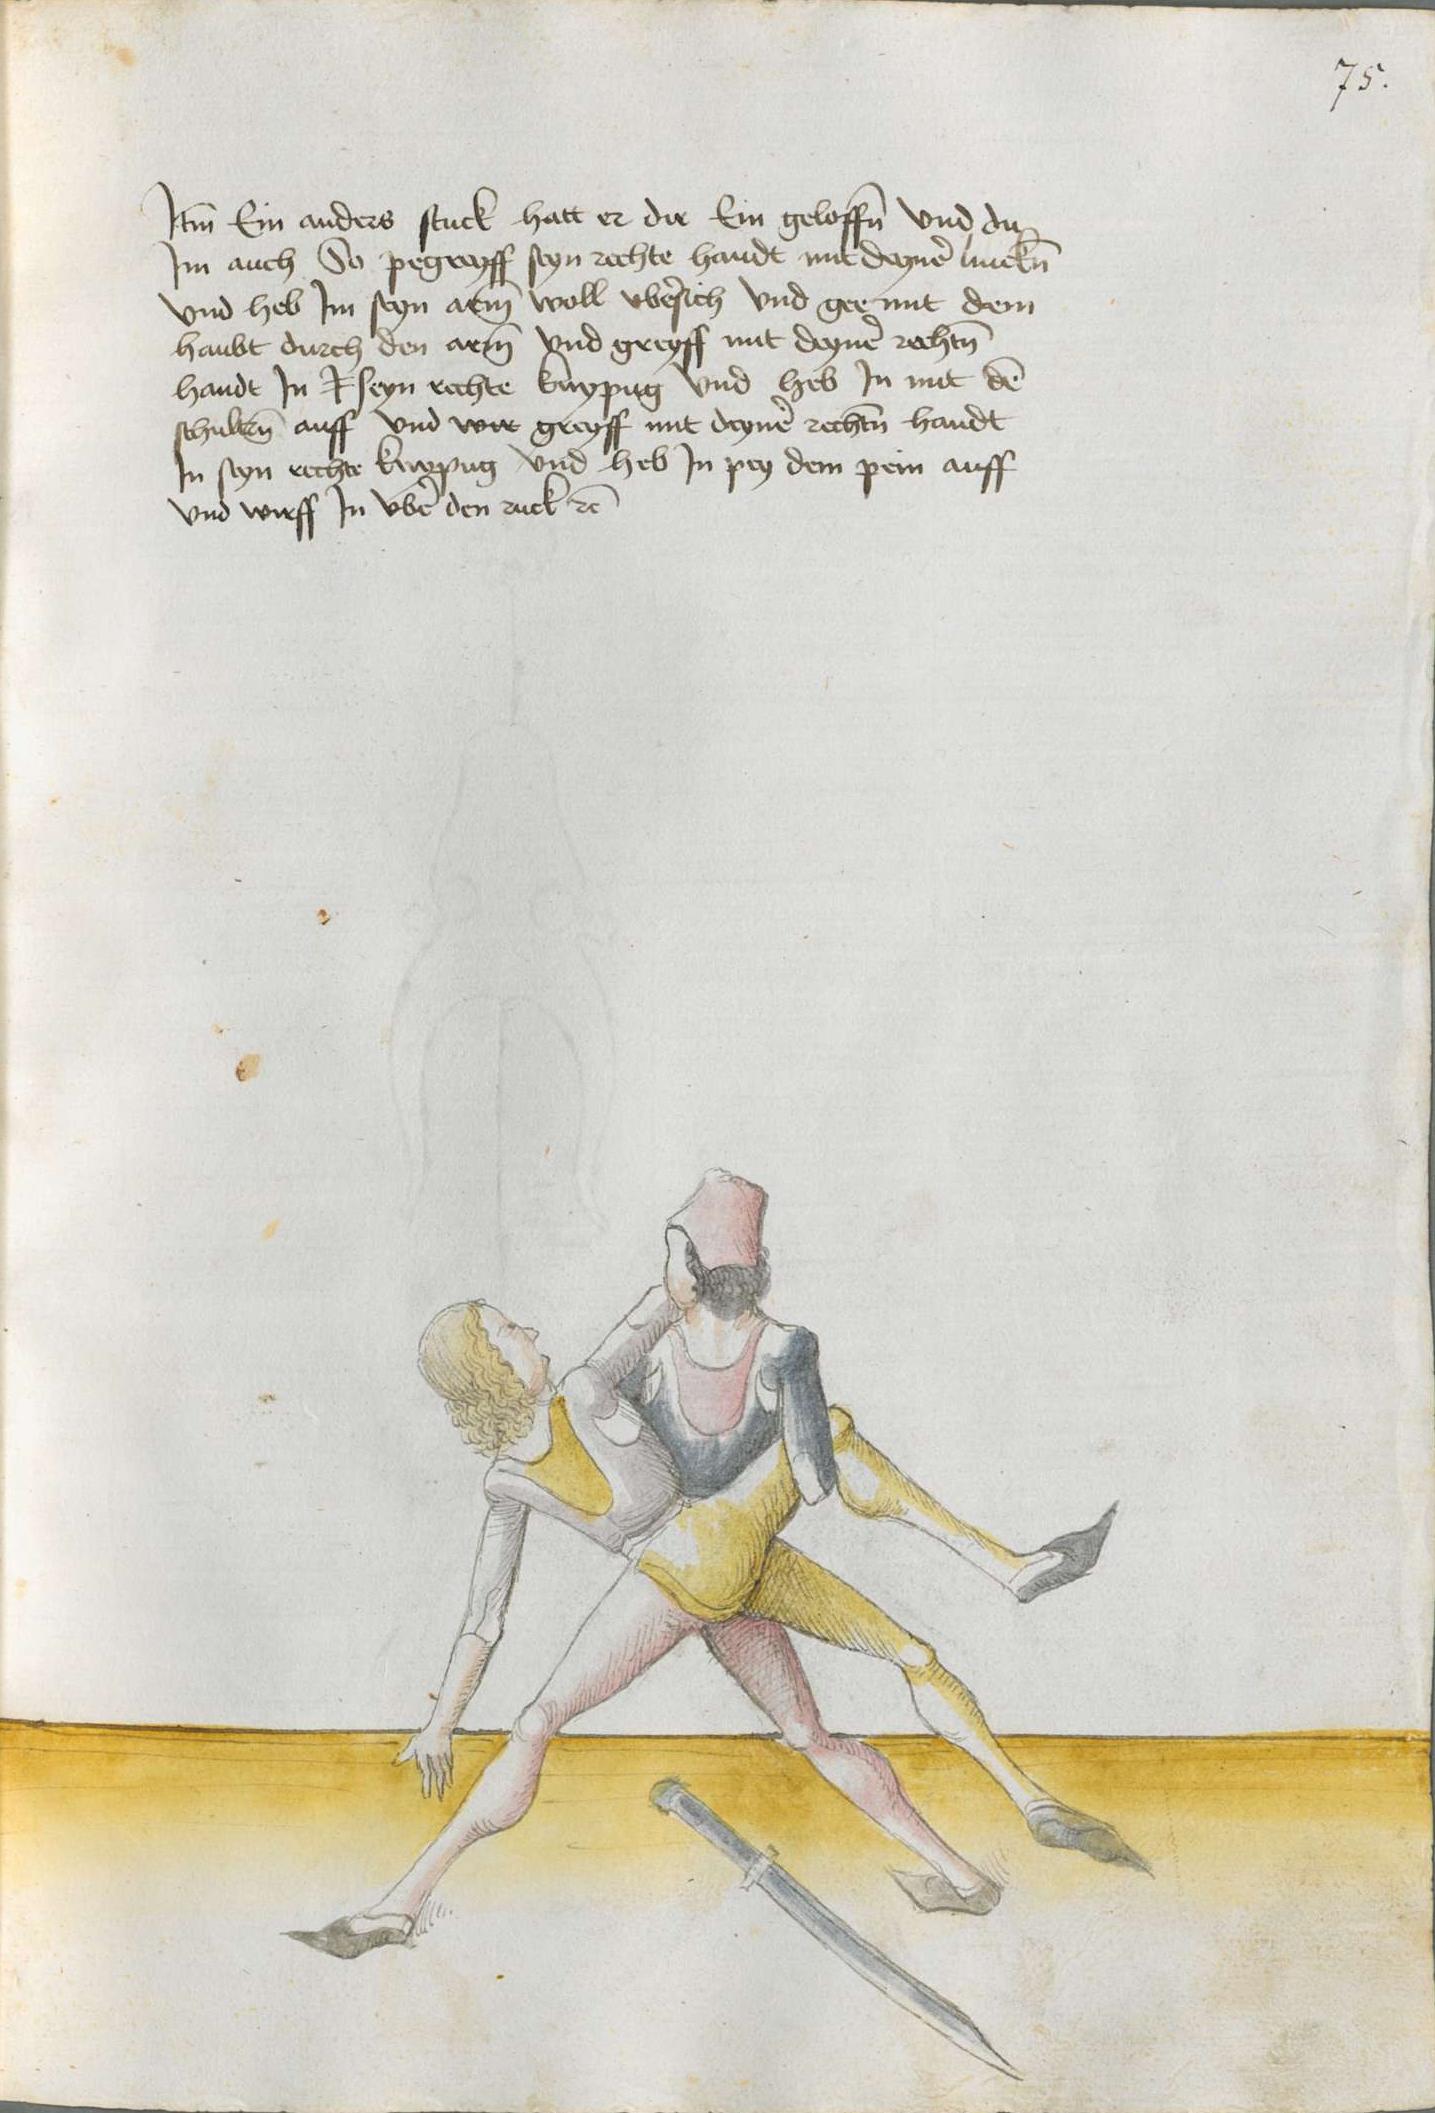 75.
Itm̄ Ein anders stuck hatt er dir Ein geloffn̄ vnd du
Im auch So pegreyff seyn rechte handt mit deyner̄ linckn̄
vnd heb Im seyn arm̄ woll vber̄sich vnd gee mit dem
haubt durch den arm̄ vnd greyff mit deyner̄ rechtn̄
handt In seyn rechte knypug vnd heb In mit dē
schultern̄ auff vnd greyff mit deyner̄ rechtn̄ handt
In seyn rechte knypug vnd heb In pey dem pein auff
vnd wirff In vber̄ den ruck rc̄